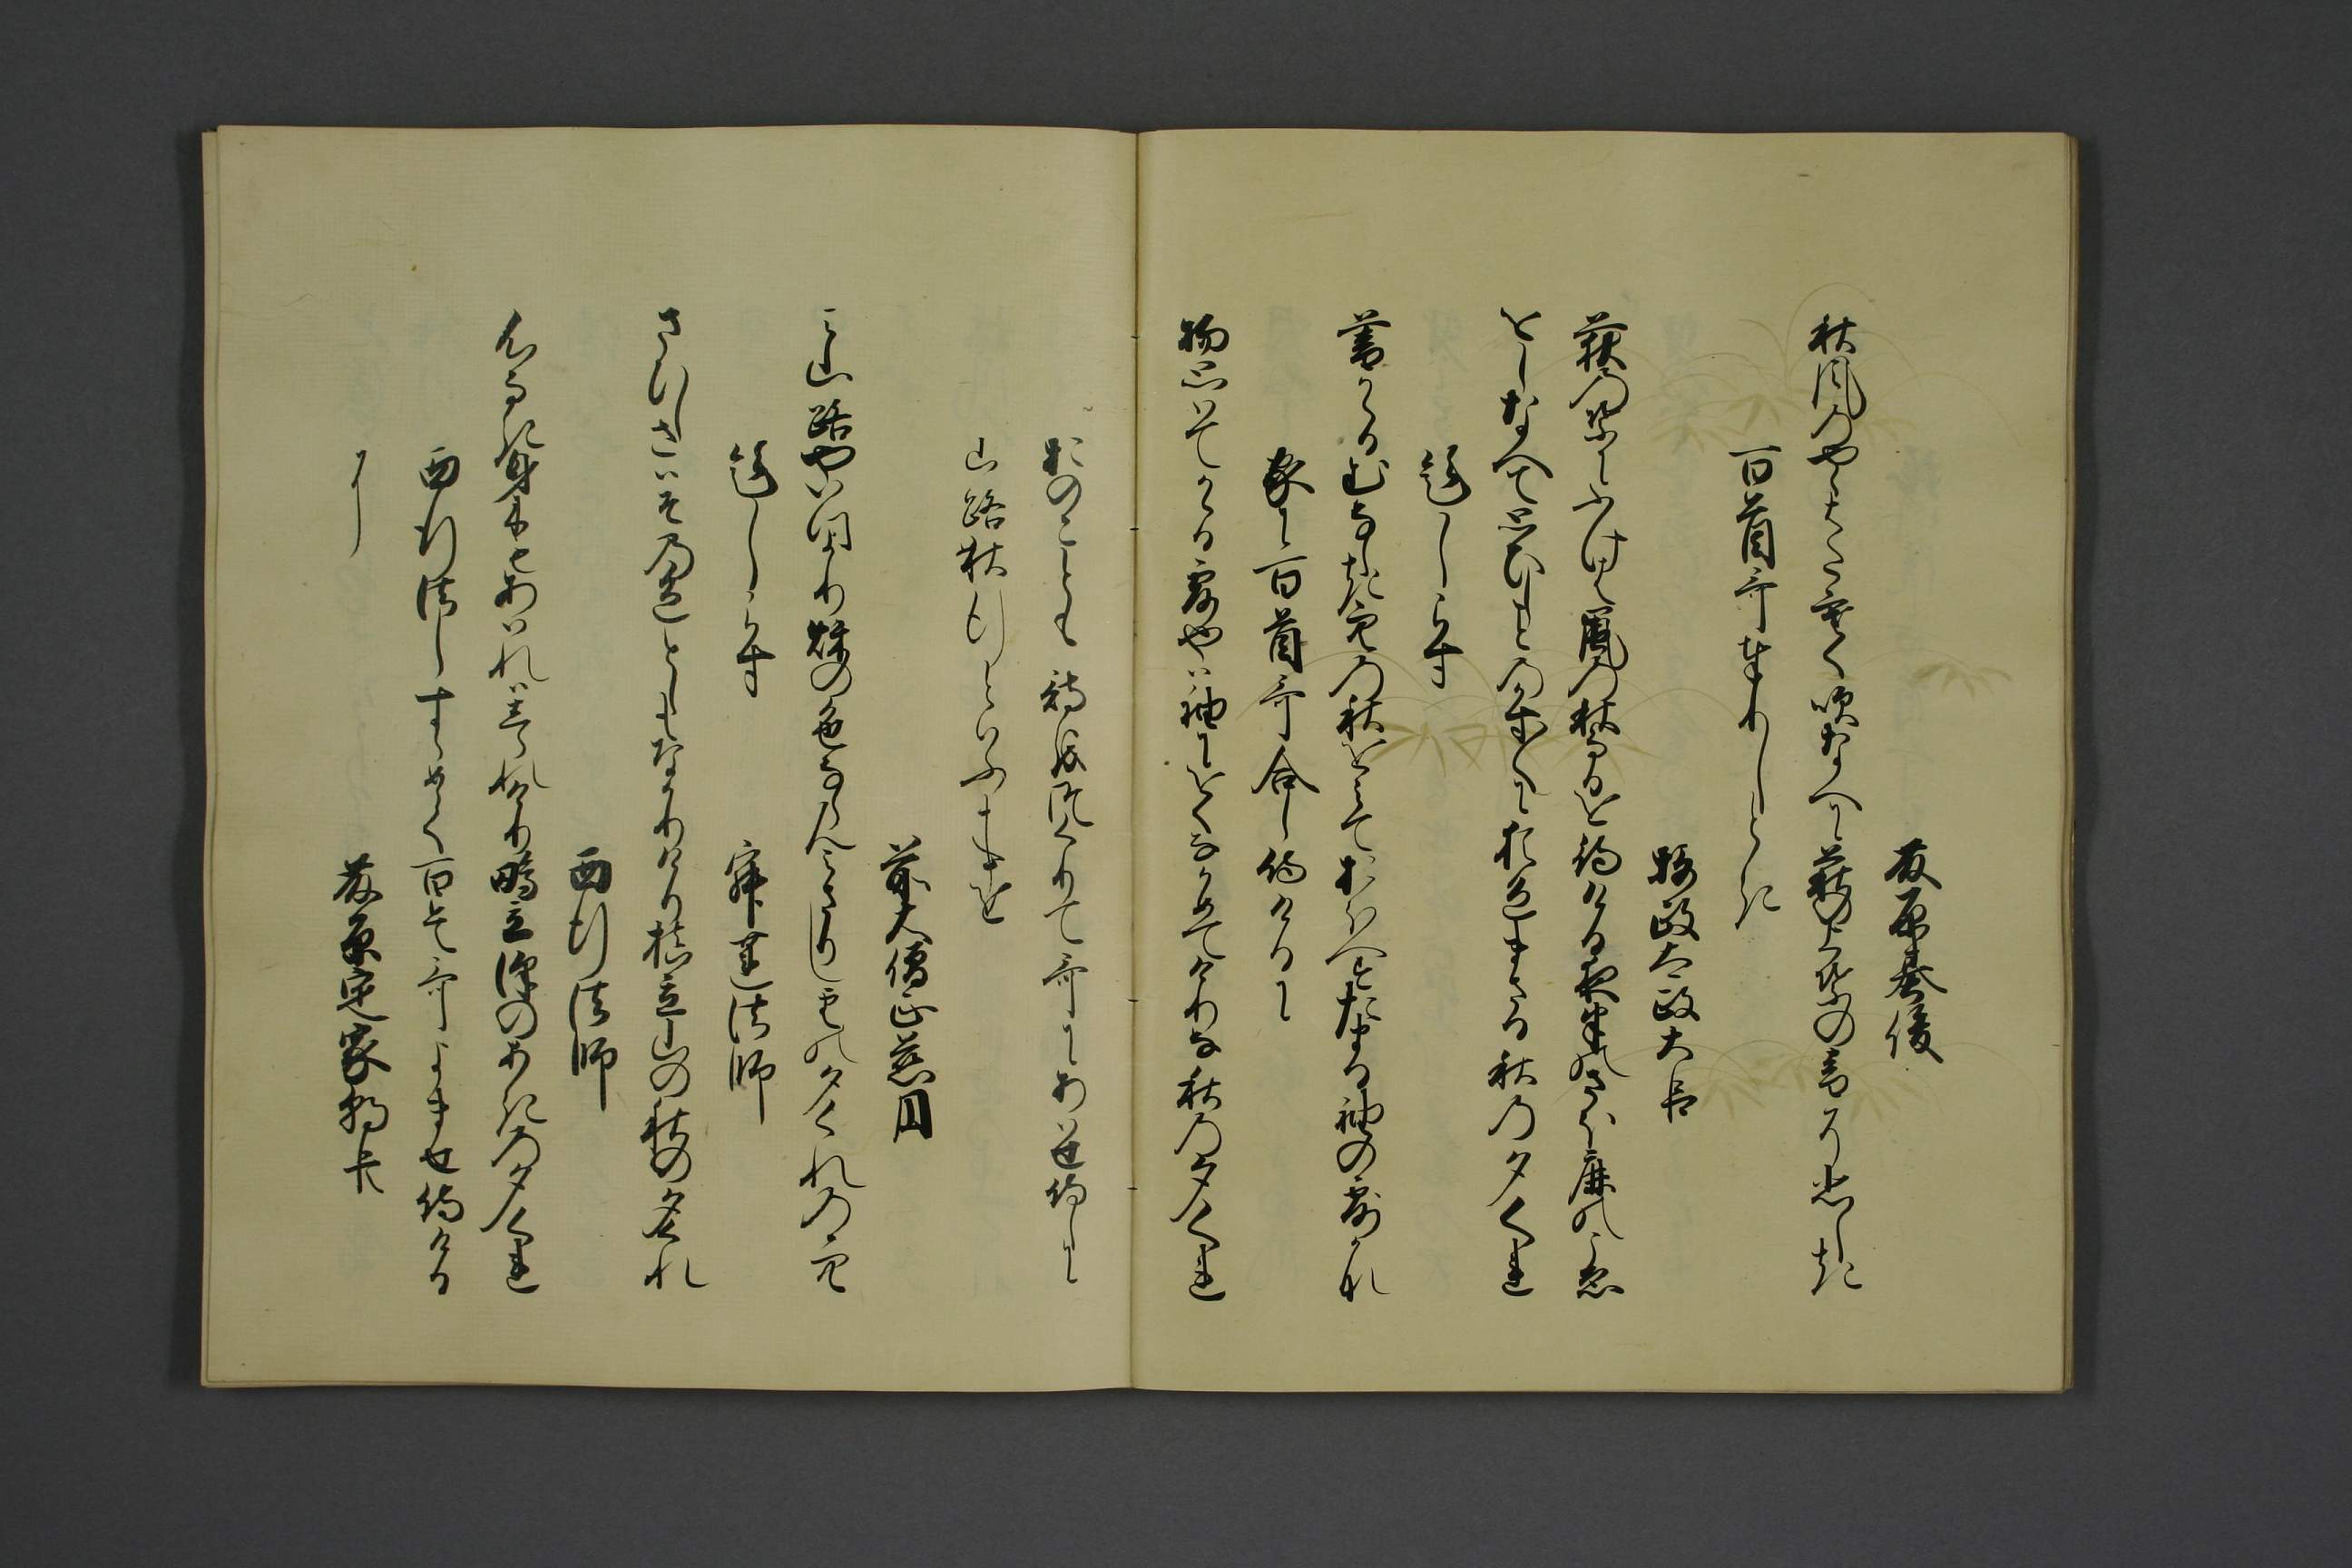 藤原基俊
秋風のやゝはたさむく吹なへに荻のうは葉の音そかなしき
百首哥奉りしとき
摂政太政大臣
荻の葉にふけは嵐の秋なるを待ける夜半のさほ鹿のこゑ
をしなへて思ひしことのかす〱に猶色まさる秋の夕くれ
題しらす
暮かゝるむなしき空の秋をみておほへすたまる袖の露かな
家に百首哥合し侍けるに
物思はてかゝる露やは袖にをくなかめてけりな秋の夕くれ
おのことも詩をつくりて哥にあはせ侍しに
山路秋行といふことを
前大僧正慈円
み山路やいつより秋の色ならんみさりし雲の夕くれの空
題しらす　寂蓮法師
さひしさはその色としもなかりけり槙立山の秋の夕くれ
西行法師
心なき身にもあはれはしられけり鴫立沢のあきの夕くれ
西行法しすゝめて百首哥よませ侍ける
に　藤原定家朝臣